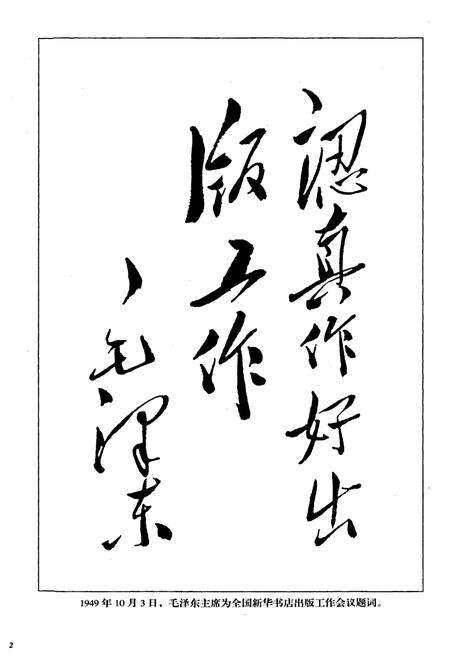 認真作好出
版工作
毛澤东
1949 年 10 月 3 日，毛泽东主席为全国新华书店出版工作会议题词。
2